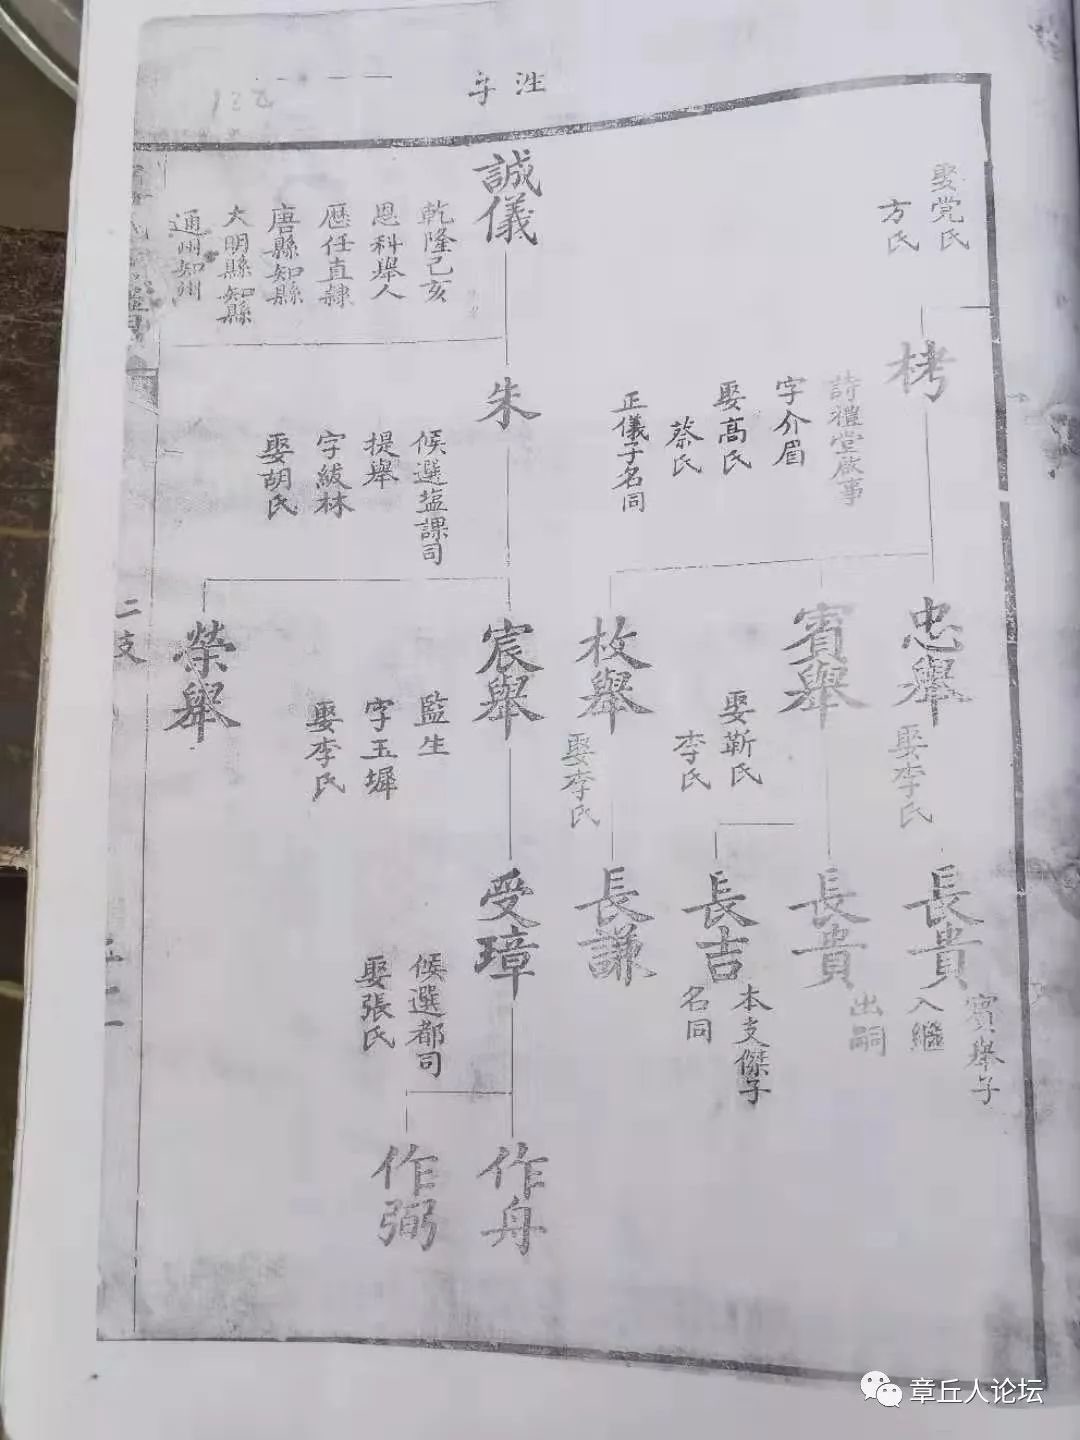 泩字
娶党氏
方氏
栲
詩禮堂啟事
字介眉
娶高氏
蔡氏
正儀子名同
忠舉
娶李氏
賓舉
娶靳氏
李氏
枚舉
娶李氏
長貴
賓舉子
入繼
長貴
出嗣
長吉
本支傑子
名同
長謙
誠儀
乾隆己亥
恩科舉人
歷任直隸
唐縣知縣
大明縣知縣
通州知州
朱
候選塩課司
提舉
字紱林
娶胡氏
宸舉
監生
字玉墀
娶李氏
榮舉
受璋
候選都司
娶張氏
作舟
作弼
二支
章丘人论坛